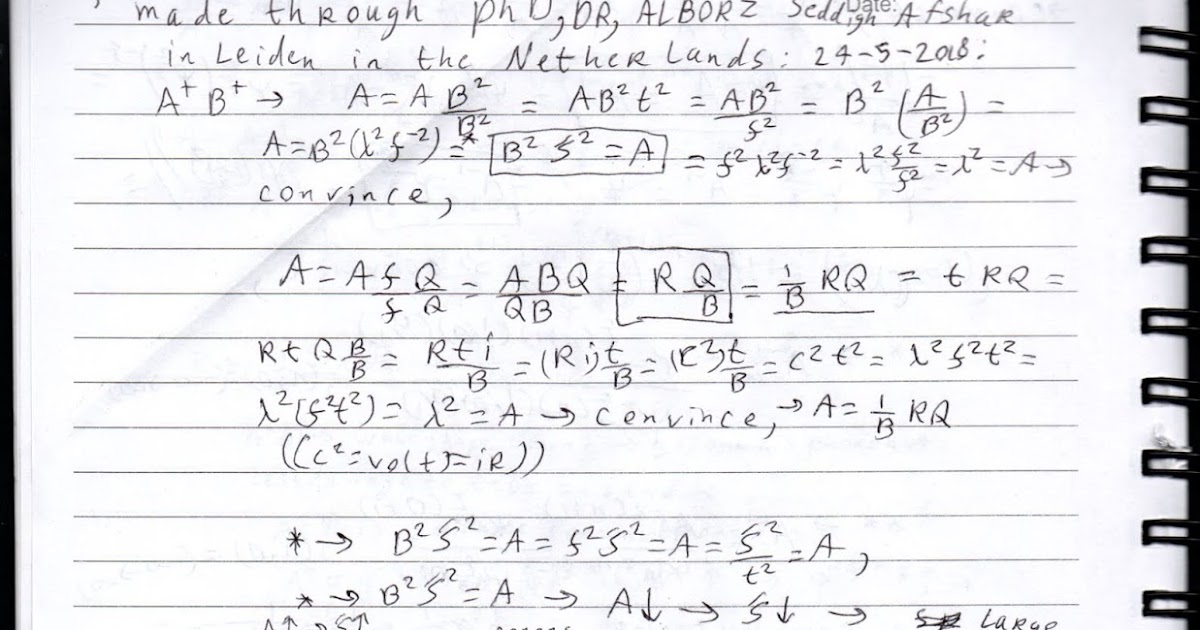 made through PhD, DR, ALBORZ Seddigh Afshar
Date:
in Leiden in the Netherlands: 24-5-2018:
A⁺ B⁺ → A = A B²/B² = AB²t² = AB²/f² = B² (A/B²) =
A = B²(λ²f⁻²) =* B² S² = A = f²λ²f⁻² = λ² f²/f² = λ² = A →
convince,
A = A f/f Q/Q = ABQ/QB = R Q/B = 1/B RQ = t RQ =
R t Q B/B = R t i/B = (R i) t/B = (C²) t/B = c² t² = λ² f² t² =
λ²(f²t²) = λ² = A → convince, → A = 1/B RQ
((c² = volt) = iR))
* → B² S² = A = f² S² = A = S²/t² = A,
* → B² S² = A → A↓ → S↓ → Large
A↑ → S↑